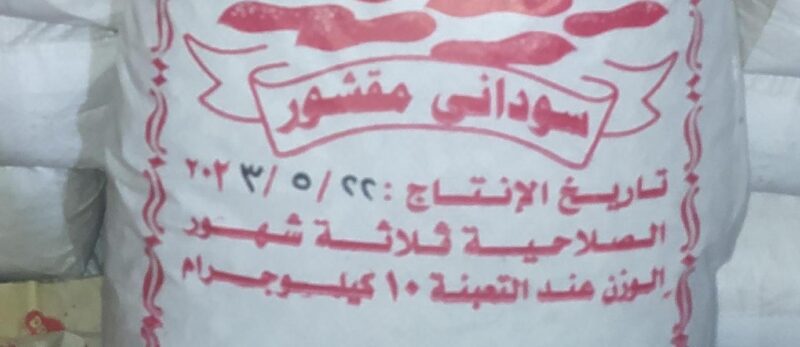 سوداني مقشور
تاريخ الإنتاج : ٢٢ / ٥ / ٢٠٢٣
الصلاحية ثلاثة شهور
الوزن عند التعبئة ١٠ كيلوجرام